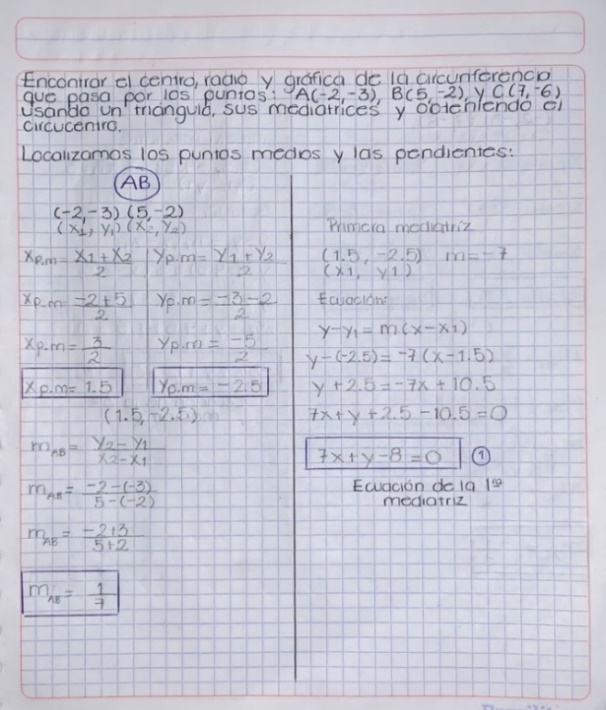 Encontrar el centro, radio y gráfica de la circunferencia
que pasa por los puntos: A(-2,-3), B(5,-2), y C(7,-6)
usando un triángulo, sus mediatrices y obteniendo el
circucentro.
Localizamos los puntos medios y las pendientes:
AB
(-2,-3) (5,-2)
(x1, y1) (x2, y2)
xp.m = x1 + x2 / 2
yp.m = y1 + y2 / 2
xp.m = -2 + 5 / 2
yp.m = -3 - 2 / 2
xp.m = 3 / 2
yp.m = -5 / 2
xp.m = 1.5
yp.m = -2.5
(1.5, -2.5)
mAB = y2 - y1 / x2 - x1
mAB = -2 - (-3) / 5 - (-2)
mAB = -2 + 3 / 5 + 2
mAB = 1 / 7
Primera mediatriz
(1.5, -2.5) m = -7
(x1, y1)
Ecuación:
y - y1 = m (x - x1)
y - (-2.5) = -7 (x - 1.5)
y + 2.5 = -7x + 10.5
7x + y + 2.5 - 10.5 = 0
7x + y - 8 = 0 ①
Ecuación de la 1ra
mediatriz